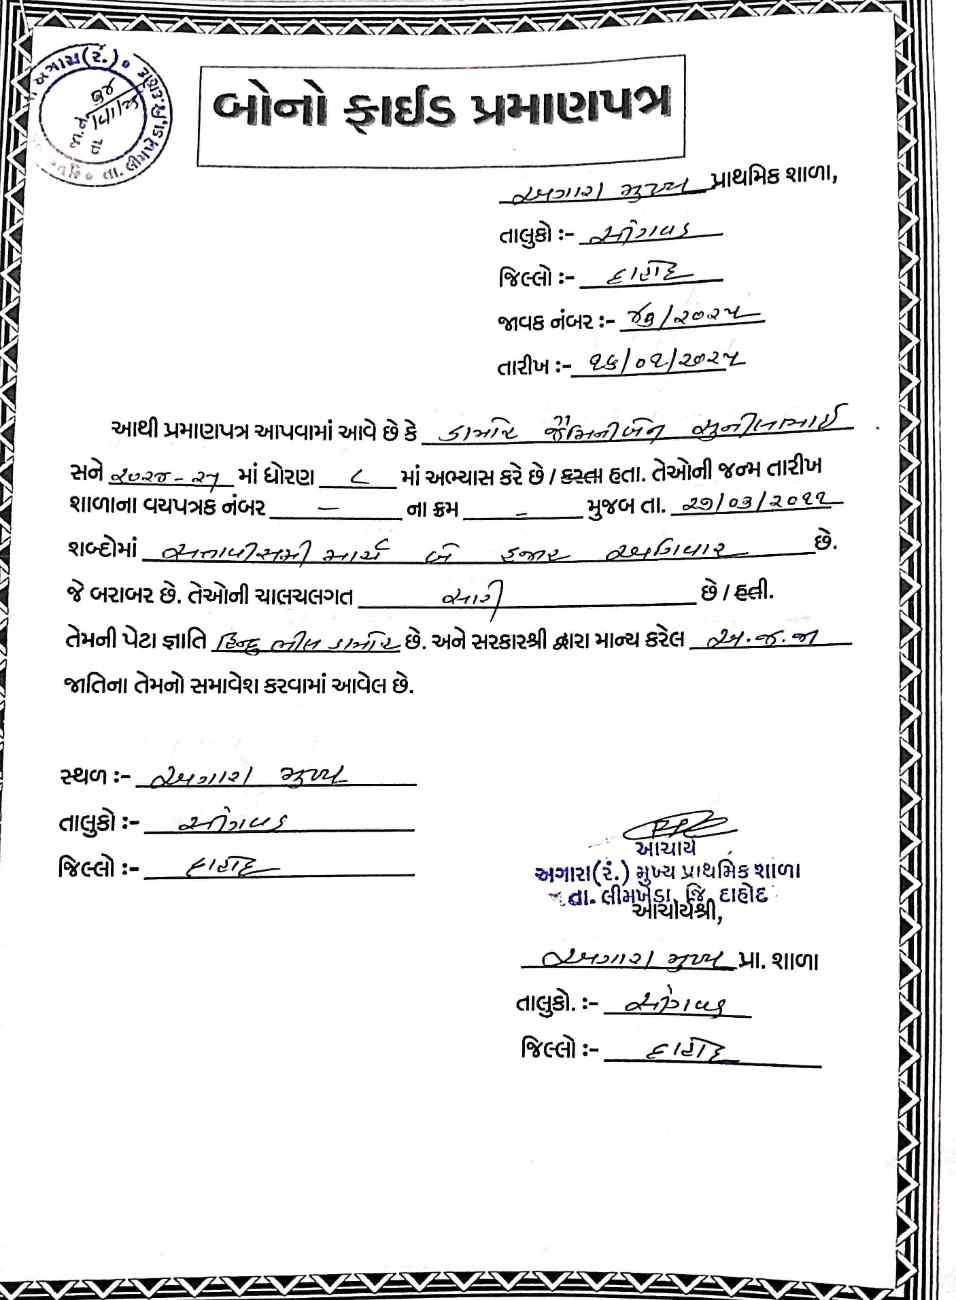 અગારા(રં.)
તા. લીમખેડા
બોનો ફાઈડ પ્રમાણપત્ર
અગારા મુખ્ય પ્રાથમિક શાળા,
તાલુકો :- સીંગવડ
જિલ્લો :- દાહોદ
જાવક નંબર :- /૨૦૨૫
તારીખ :- ૧૬/૦૧/૨૦૨૫
આથી પ્રમાણપત્ર આપવામાં આવે છે કે ડામોર જૈમિનીબેન સુનીલભાઈ
સને ૨૦૨૪-૨૫ માં ધોરણ ૮ માં અભ્યાસ કરે છે / કરતા હતા. તેઓની જન્મ તારીખ
શાળાના વયપત્રક નંબર – ના ક્રમ – મુજબ તા. ૨૭/૦૩/૨૦૧૧
શબ્દોમાં સત્તાવીસમી માર્ચ બે હજાર અગિયાર છે.
જે બરાબર છે. તેઓની ચાલચલગત સારી છે / હતી.
તેમની પેટા જ્ઞાતિ હિન્દુ ભીલ ડામોર છે. અને સરકારશ્રી દ્વારા માન્ય કરેલ અ.જ.જા
જાતિના તેમનો સમાવેશ કરવામાં આવેલ છે.
સ્થળ :- અગારા મુખ્ય
તાલુકો :- સીંગવડ
જિલ્લો :- દાહોદ
આચાર્ય
અગારા(રં.) મુખ્ય પ્રાથમિક શાળા
તા. લીમખેડા, જિ દાહોદ
આચાર્યશ્રી,
અગારા મુખ્ય પ્રા. શાળા
તાલુકો. :- સીંગવડ
જિલ્લો :- દાહોદ